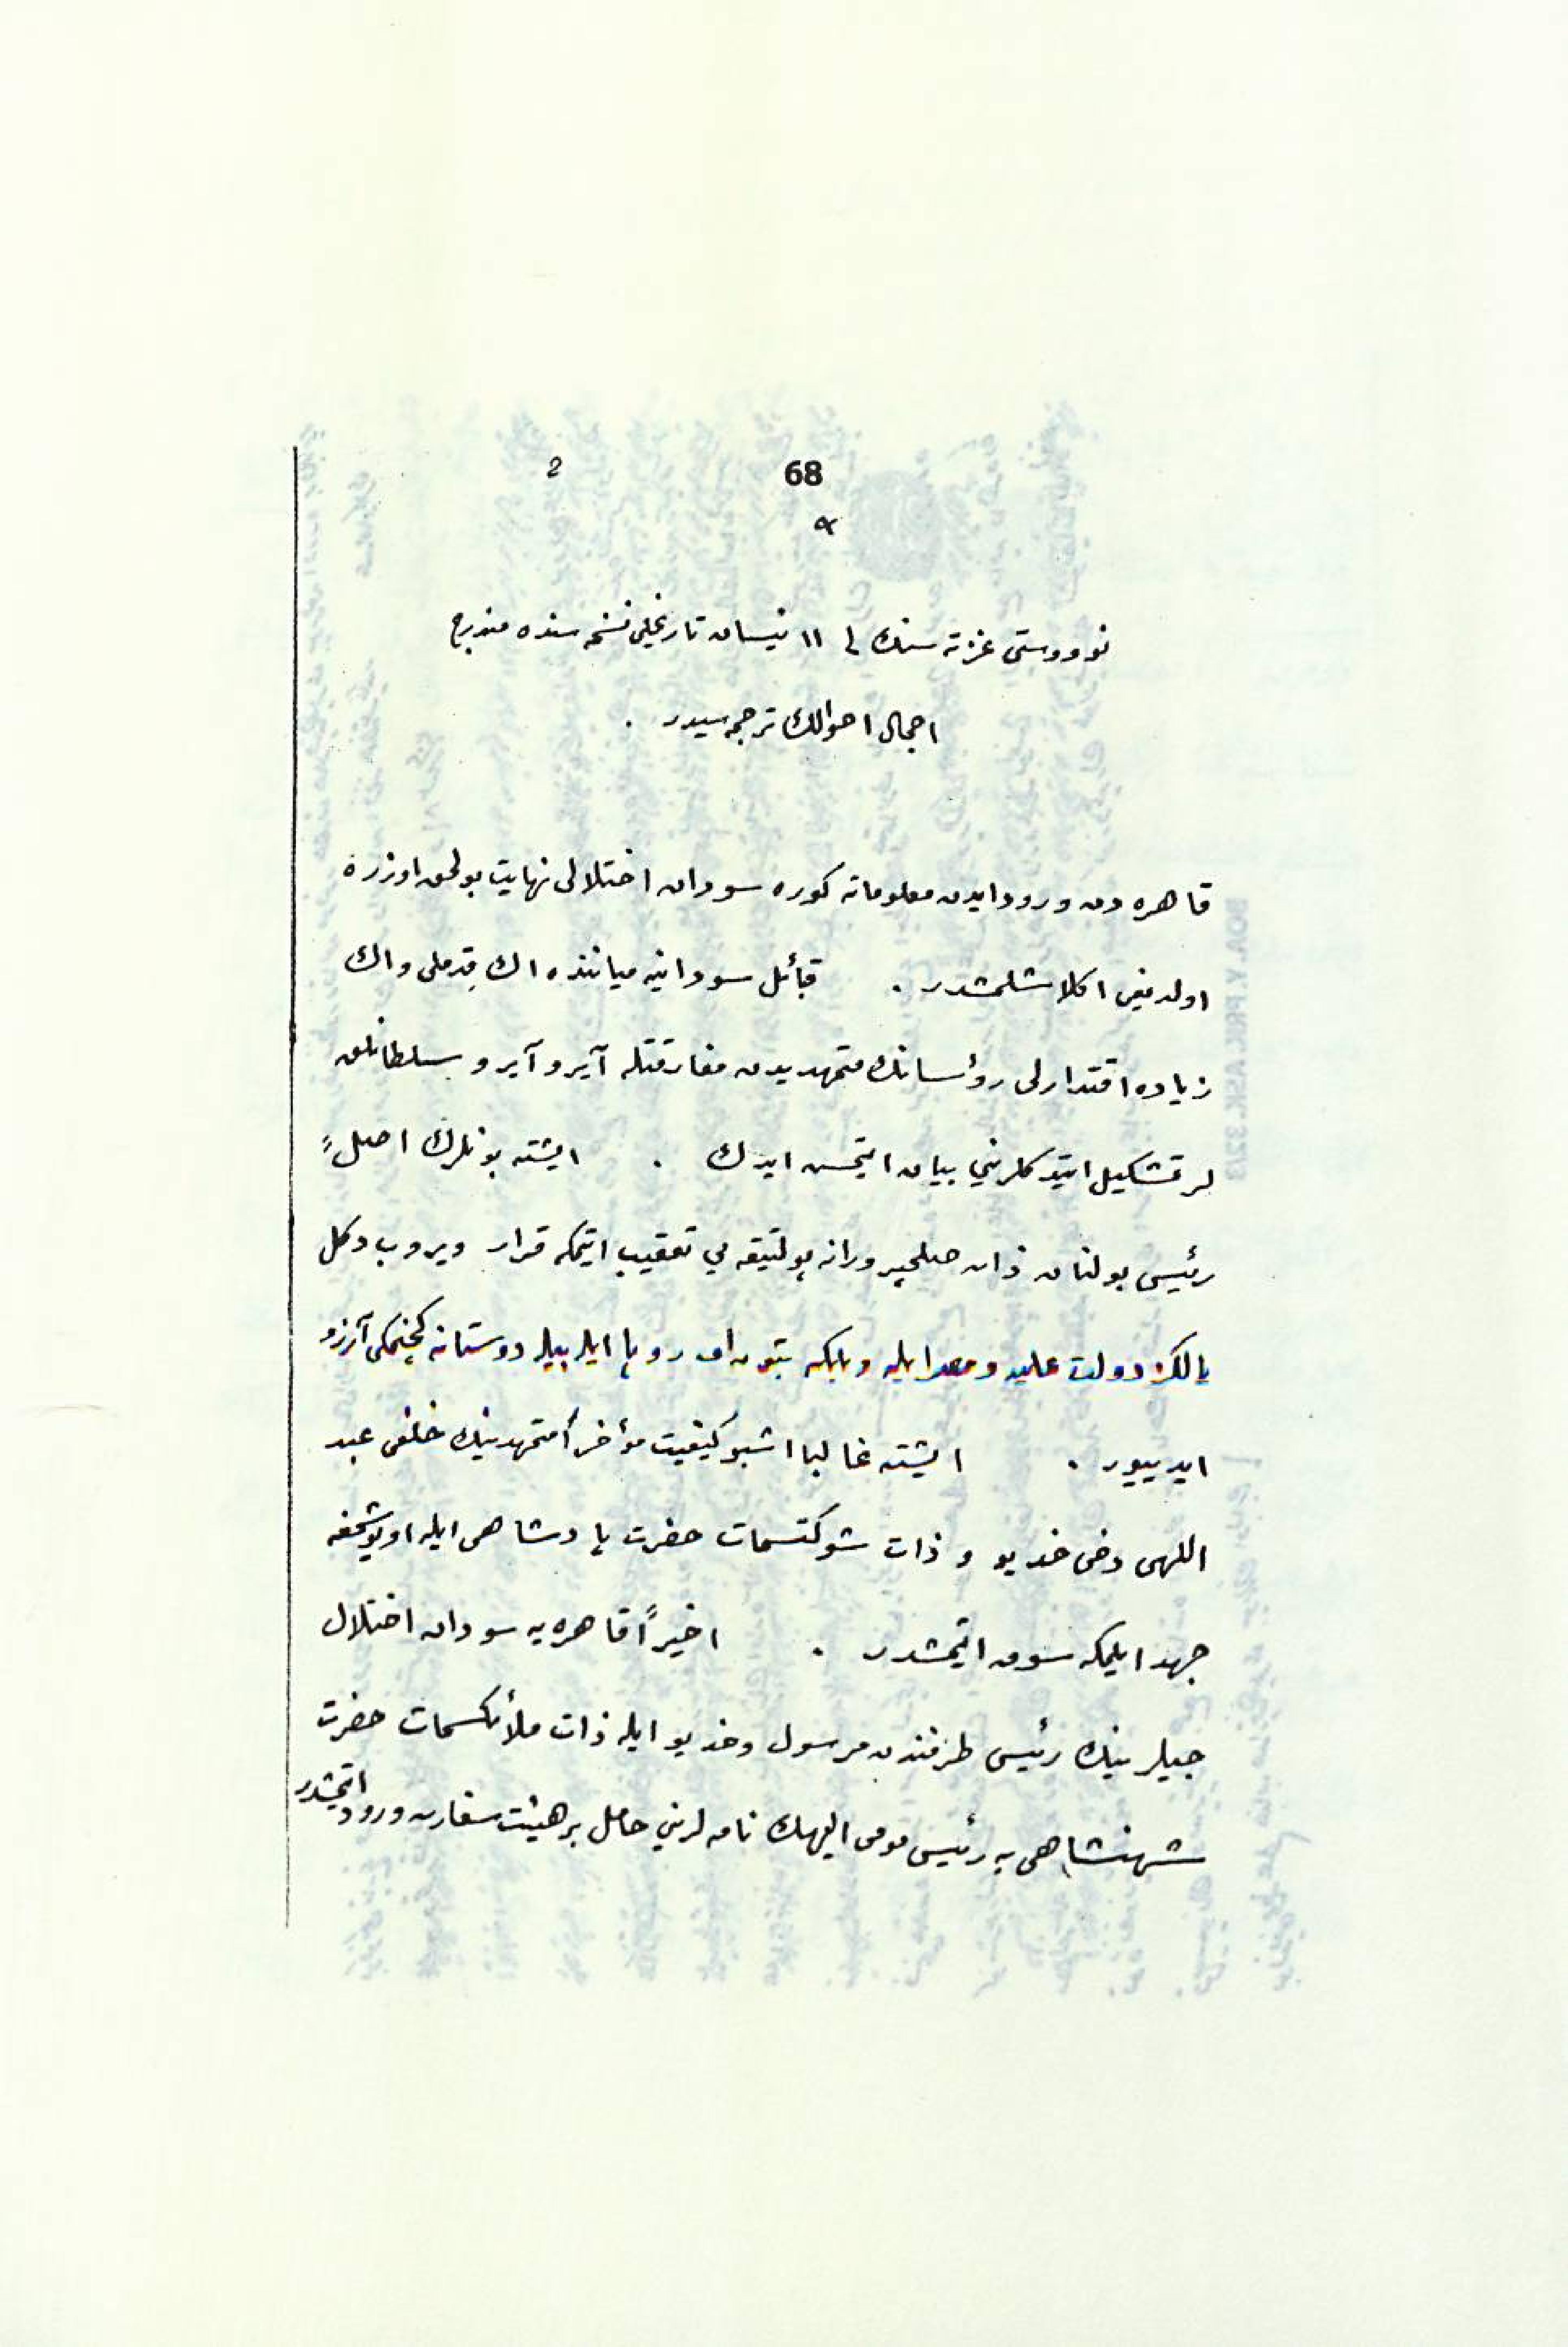 2
68
نووستی غزته سنك لی ١١ نیسان تاریخلی نسخه سنده مندرج
اجمال احوالك ترجمه سیدر .
قاهره دن ورود ایدن معلوماته كوره سودان اختلالی نهایت بولمق اوزره
اولدیغی اكلاشلمشدر . قبائل سودانیه میاننده اك قدملی واك
زیاده اقتدارلی رؤسانك متمهدیدن مفارقتله آیرو آیرو سلطانلق
لر تشكیل ایتدكلرینی بیان ایتمش ایدك . ایشته بونلرك اصلاً
رئیسی بولنان ذات صلحپرورانه پولتیقه یی تعقیب ایتمكه قرار ویروب دكل
یالكز دولت علیه ومصر ایله وبلكه بتون اوروپا ایله بیله دوستانه كچینمكی آرزو
ایدییور . ایشته غالبا اشبو كیفیت مؤخراً متمهدینك خلفی عبد
اللهی دخی خدیو و ذات شوكتسمات حضرت پادشاهی ایله اویوشمغه
جهد ایلمكه سوق ایتمشدر . اخیراً قاهره یه سودان اختلال
جیلرینك رئیسی طرفندن مرسول وخدیو ایله ذات ملائكسمات حضرت
شهنشاهی یه رئیس مومی الیهك نامه لرینی حامل بر هیئت سفارت ورود ایتمشدر